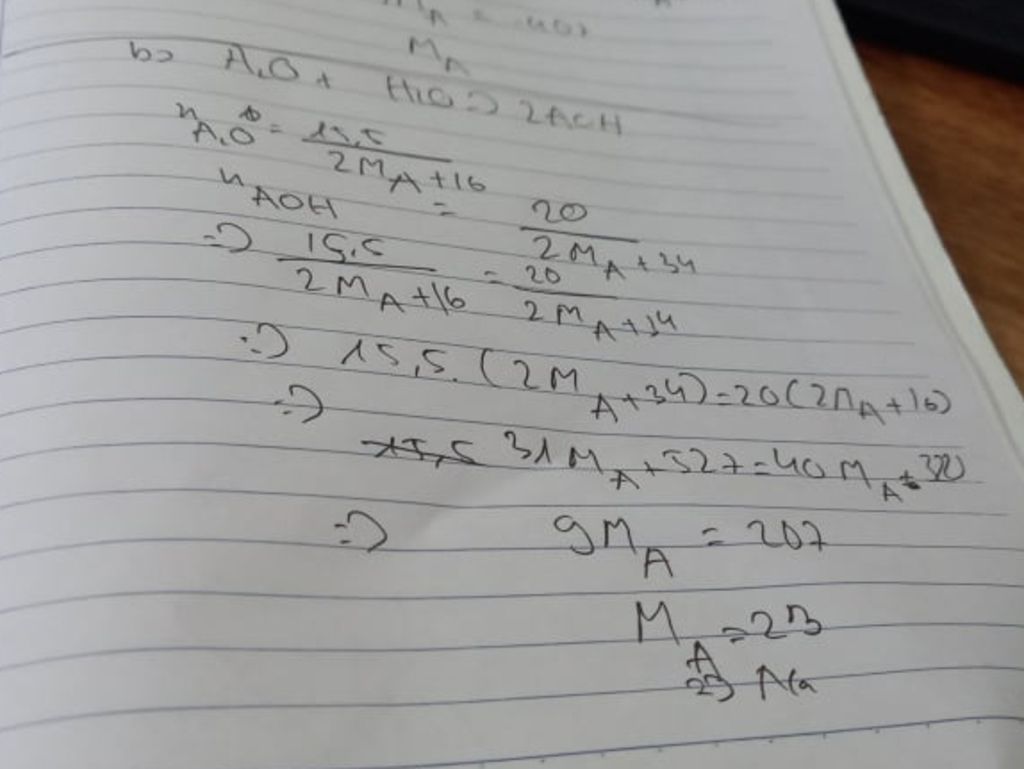 M_A
b) A₂O + H₂O => 2AOH
n_A₂O = 15,5 / (2M_A + 16)
n_AOH = 20 / (2M_A + 34)
=> 15,5 / (2M_A + 16) = 20 / (2M_A + 34)
=> 15,5. (2M_A + 34) = 20(2M_A + 16)
=>
15,5 31M_A + 527 = 40M_A + 320
=> 9M_A = 207
M_A = 23
23 Na